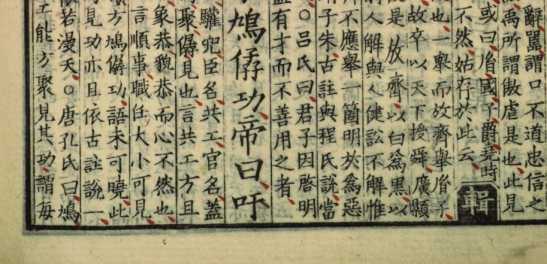 辭嚚謂口不道忠信之
所謂傲虐是也此見
或曰胤國子爵堯時
不然姑存於此云
軒
也擧而放齊擧胤子
故卒以天下授舜廣顯
是放齊以白爲黑以
人解與人健訟不解惟
不應擧一箇明灰爲惡
子朱古註與程氏說當
○呂氏曰君子因啓明
有才而不善用之者
鳩僝功帝曰吁
驩兜臣名共工官名蓋
聚僝見也言共工方且
象恭貌恭而心不然也
言順事職任大小可見
方鳩僝功語未可曉此
見功亦且依古註說一
若漫天○唐孔氏曰鳩
工能方聚見其功謂每